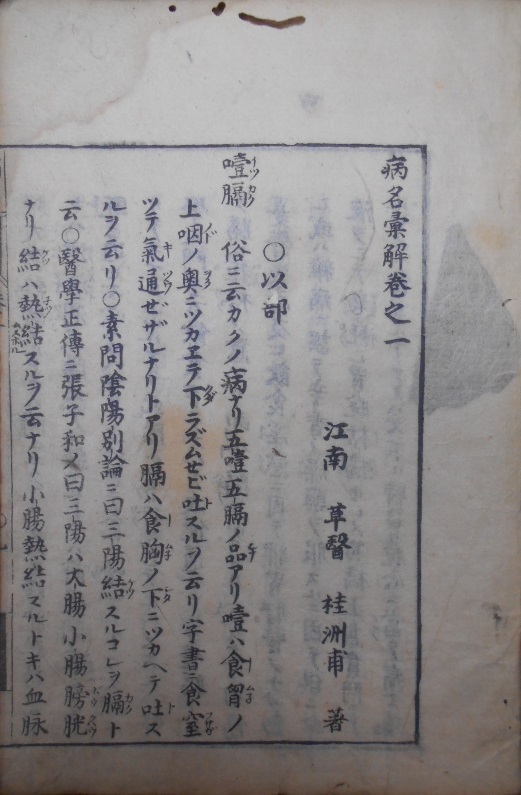 病名彙解巻之一
江南 草醫 桂洲甫 著
○以部
噎膈 俗ニ云カクノ病ナリ五噎五膈ノ品アリ噎ハ食胷ノ
上咽ノ奧ニツカヱテ下ラズムせビ吐スルヲ云リ字書ニ食窒
ツテ氣通ぜザルナリトアリ膈ハ食胸ノ下ニツカヘテ吐ス
ルヲ云リ○素問陰陽別論ニ曰三陽結スルコレヲ膈ト
云○醫學正傳ニ張子和カ曰三陽ハ大腸小腸膀胱
ナリ結ハ熱結スルヲ云ナリ小腸熱結スルトキハ血脉